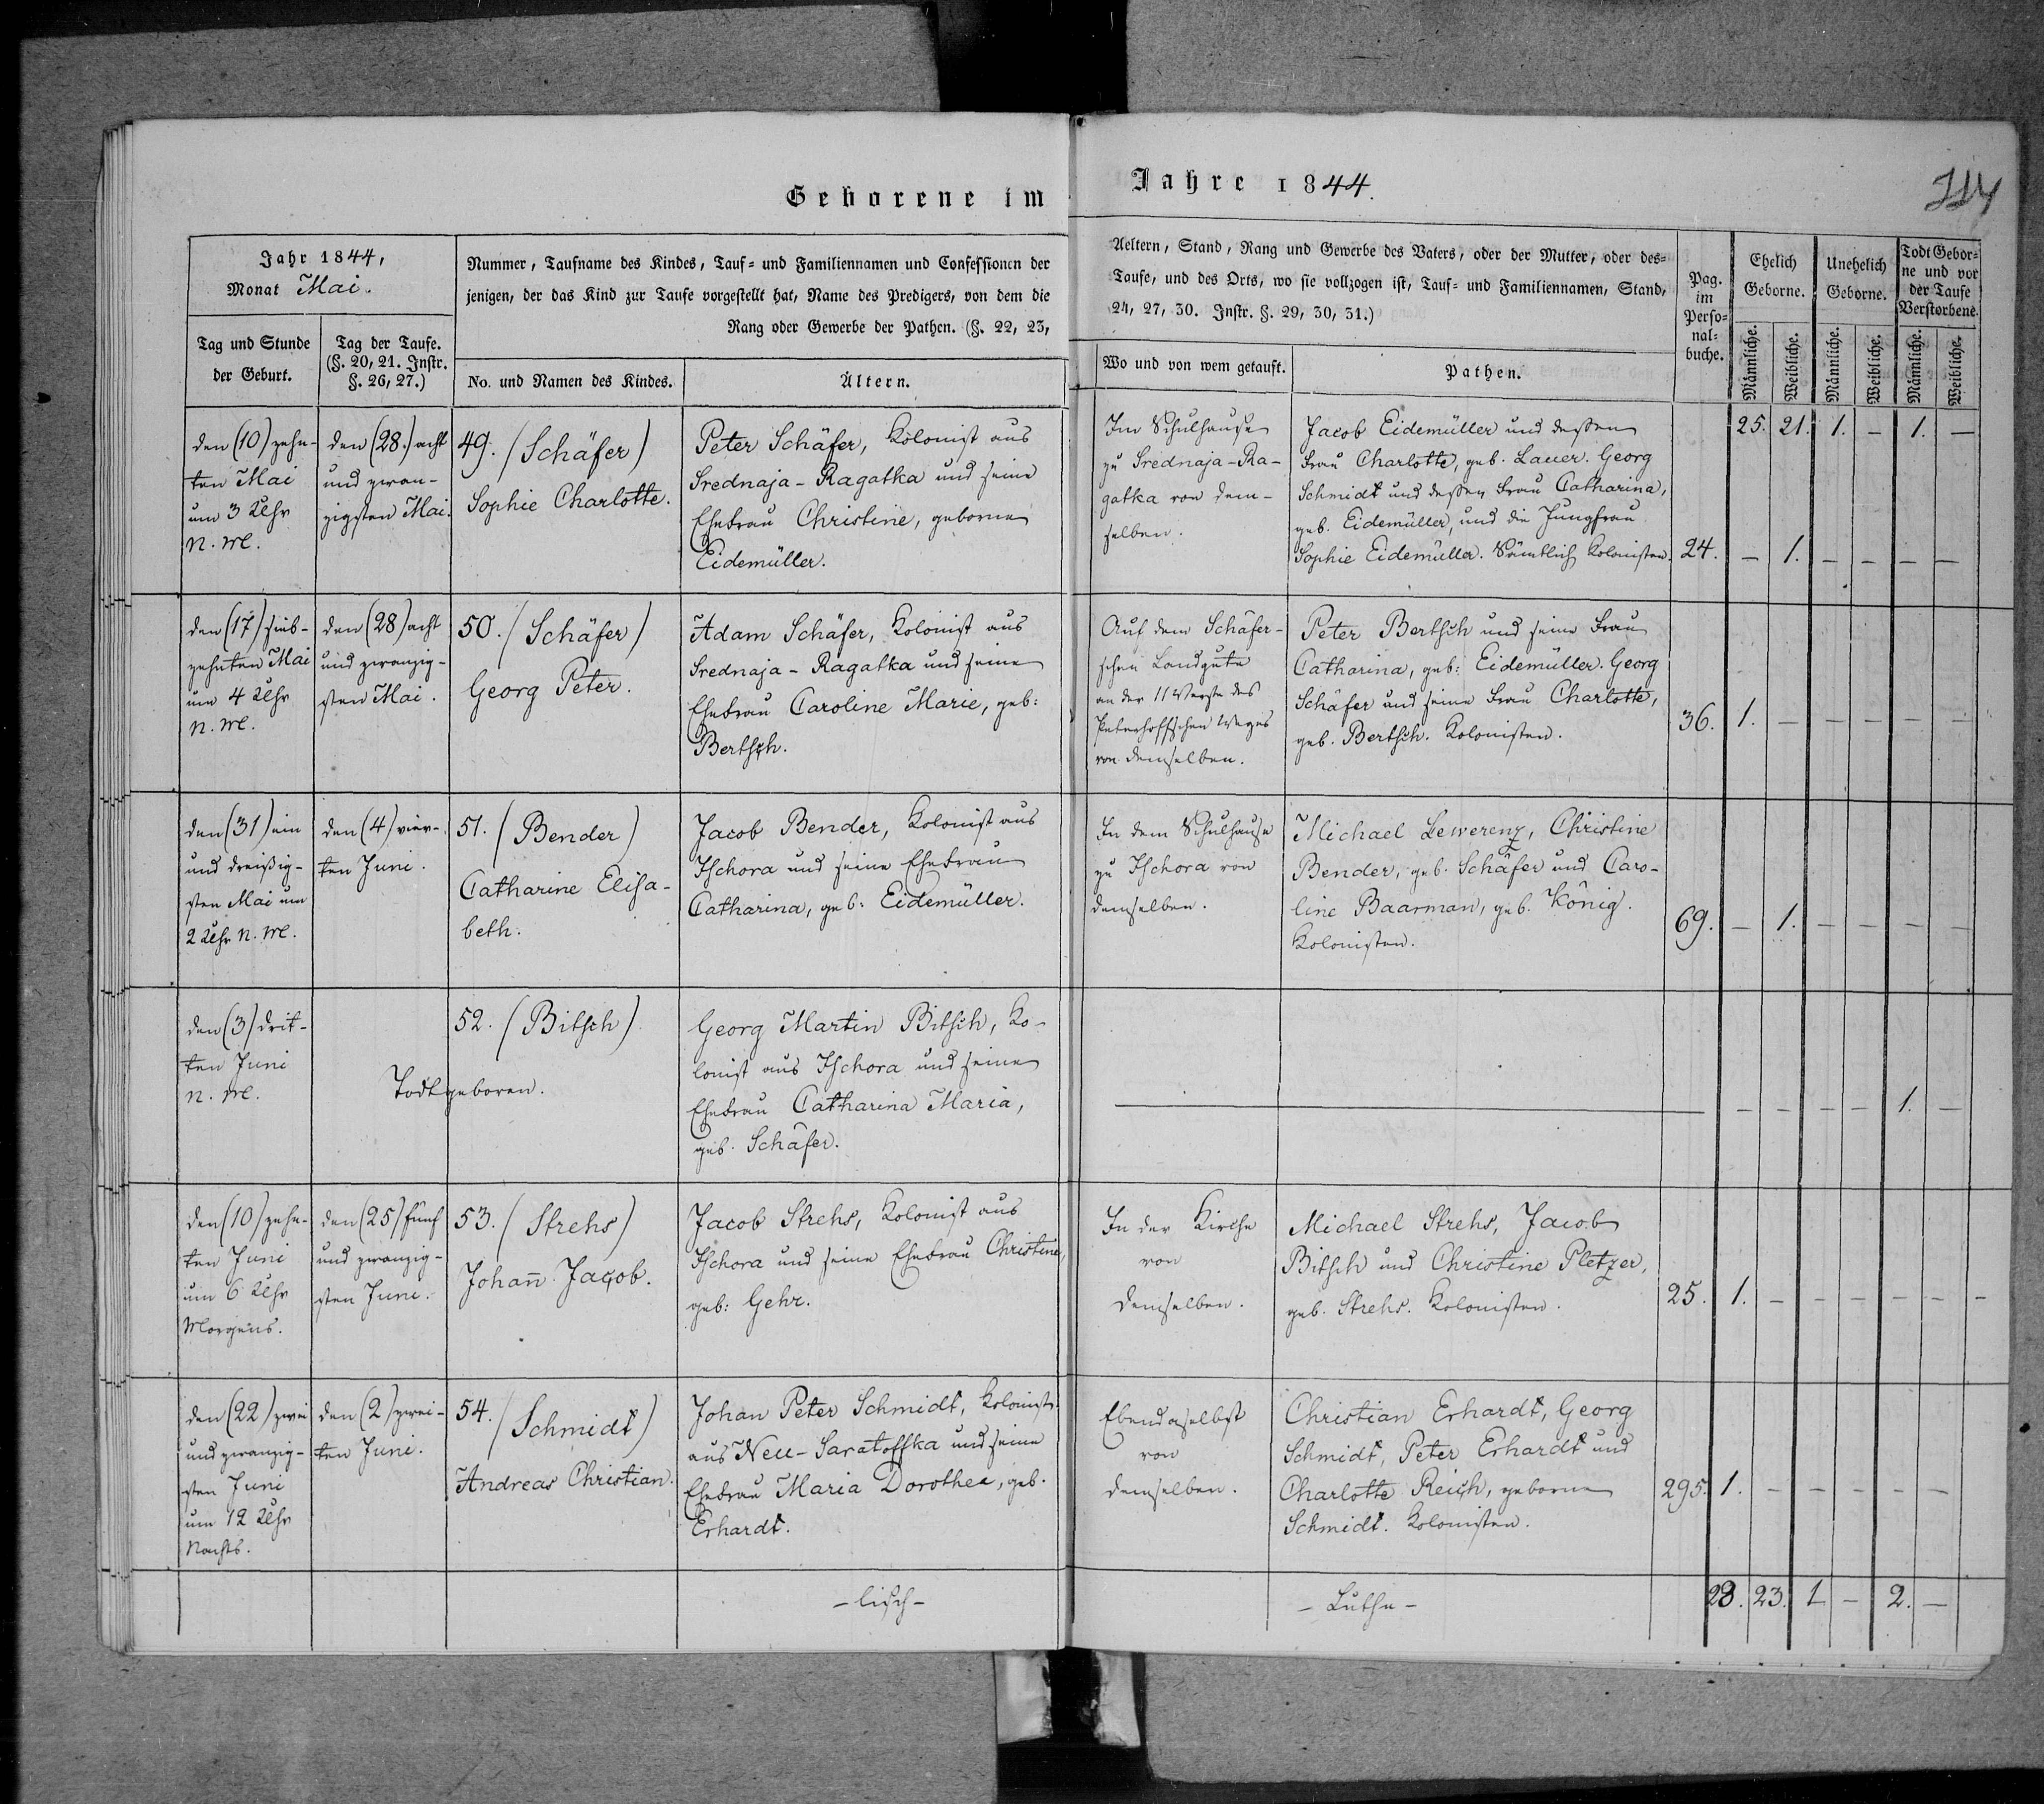 Geborene im
Jahre 1844.
Jahr 1844,
Monat Mai.
Nummer, Taufname des Kindes, Tauf- und Familiennamen und Confessionen der
jenigen, der das Kind zur Taufe vorgestellt hat, Name des Predigers, von dem die
Rang oder Gewerbe der Pathen. (§. 22, 23,
Tag und Stunde
der Geburt.
Tag der Taufe.
(§. 20, 21. Instr.
§. 26, 27.)
No. und Namen des Kindes.
Ältern.
Aeltern, Stand, Rang und Gewerbe des Vaters, oder der Mutter, oder des-
Taufe, und des Orts, wo sie vollzogen ist, Tauf- und Familiennamen, Stand,
24, 27, 30. Instr. §. 29, 30, 31.)
Wo und von wem getauft.
Pathen.
Pag.
im
Perso-
nal-
buche.
Ehelich
Geborne.
Unehelich
Geborne.
Todt Gebor-
ne und vor
der Taufe
Verstorbene.
Männliche.
Weibliche.
Männliche.
Weibliche.
Männliche.
Weibliche.
den (10) zehn-
ten Mai
um 3 Uhr
N. M.
den (28.) acht
und zwan-
zigsten Mai.
49. (Schäfer)
Sophie Charlotte.
Peter Schäfer, Kolonist aus
Srednaja-Ragatka und seine
Ehefrau Christine, geborne
Eidemüller.
Im Schulhause
zu Srednaja-Ra-
gatka von dem-
selben.
Jacob Eidemüller und deßen
Frau Charlotte, geb. Lauer. Georg
Schmidt und deßen Frau Catharina,
geb. Eidemüller, und die Jungfrau
Sophie Eidemüller. Sämtlich Kolonisten.
25. 21. 1. – 1. –
24. – 1. – – – –
den (17) sieb-
zehnten Mai
um 4 Uhr
N. M.
den (28) acht
und zwanzig-
sten Mai.
50. (Schäfer)
Georg Peter.
Adam Schäfer, Kolonist aus
Srednaja-Ragatka und seine
Ehefrau Caroline Marie, geb:
Bertsch.
Auf dem Schäfer-
schen Landgute
an der 11 Werste des
Peterhoffschen Weges
von demselben.
Peter Bertsch und seine Frau
Catharina, geb: Eidemüller. Georg
Schäfer und seine Frau Charlotte,
geb. Bertsch. Kolonisten.
36. 1. – – – – –
den (31) ein
und dreißig-
sten Mai um
2 Uhr N. M.
den (4) vier-
ten Juni.
51. (Bender)
Catharine Elisa-
beth.
Jacob Bender, Kolonist aus
Ischora und seine Ehefrau
Catharina, geb: Eidemüller.
In dem Schulhause
zu Ischora von
demselben.
Michael Lewerenz, Christine
Bender, geb. Schäfer und Caro-
line Baarman, geb. König.
Kolonisten.
69. – 1. – – – –
den (3) drit-
ten Juni
N. M.
Todtgeboren.
52. (Bitsch)
Georg Martin Bitsch, Ko-
lonist aus Ischora und seine
Ehefrau Catharina Maria,
geb. Schäfer.
– – – – 1. –
den (10) zehn-
ten Juni
um 6 Uhr
Morgens.
den (25) fünf
und zwanzig-
sten Juni.
53. (Strehs)
Johañ Jacob.
Jacob Strehs, Kolonist aus
Ischora und seine Ehefrau Christine,
geb: Gehr.
In der Kirche
von
demselben.
Michael Strehs, Jacob
Bitsch und Christine Pletzer,
geb. Strehs. Kolonisten.
25. 1. – – – – – –
den (22) zwei
und zwanzig-
sten Juni
um 12 Uhr
Nachts.
den (2) zwei-
ten Juni.
54. (Schmidt)
Andreas Christian.
Johan Peter Schmidt, Kolonist
aus Neu-Saratoffka und seine
Ehefrau Maria Dorothea, geb.
Erhardt.
Ebendaselbst
von
demselben.
Christian Erhardt, Georg
Schmidt, Peter Erhardt und
Charlotte Reich, geborne
Schmidt. Kolonisten.
295. 1. – – – – –
– lisch –
– Luthe –
28. 23. 1 – 2. –